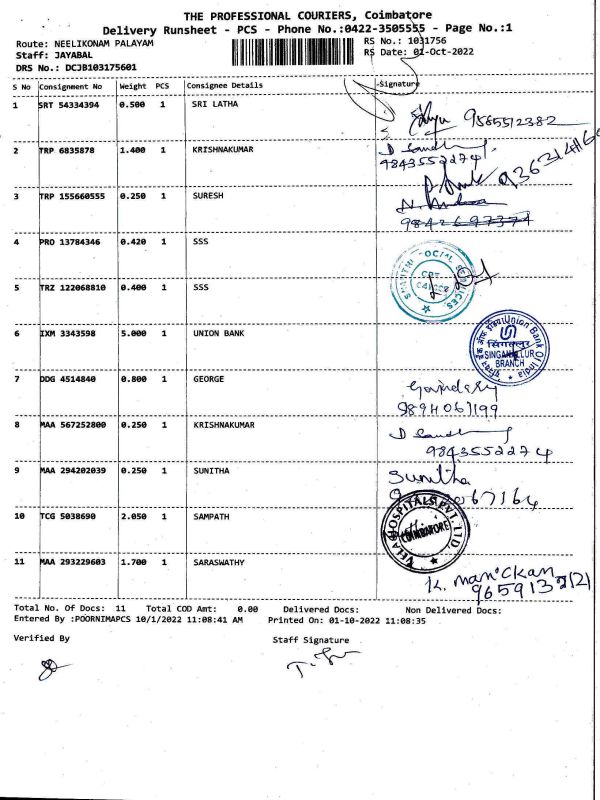 THE PROFESSIONAL COURIERS, Coimbatore
Delivery Runsheet - PCS - Phone No.:0422-3505555 - Page No.:1
Route: NEELIKONAM PALAYAM
RS No.: 1031756
Staff: JAYABAL
RS Date: 01-Oct-2022
DRS No.: DCJB103175601
S No Consignment No Weight PCS Consignee Details Signature
1 SRT 54334394 0.500 1 SRI LATHA
9565512382
2 TRP 6835878 1.400 1 KRISHNAKUMAR
9843552274
3 TRP 155660555 0.250 1 SURESH
9842697374
4 PRO 13784346 0.420 1 SSS
SHANTHI SOCIAL SERVICES
5 TRZ 122068810 0.400 1 SSS
6 IXM 3343598 5.000 1 UNION BANK
Union Bank Of India
सिंगानल्लूर
SINGANALLUR
BRANCH
7 DDG 4514840 0.800 1 GEORGE
8 MAA 567252800 0.250 1 KRISHNAKUMAR
9843552274
9 MAA 294202039 0.250 1 SUNITHA
Sunitha
67164
10 TCG 5038690 2.050 1 SAMPATH
HOSPITALS PVT. LTD.
COIMBATORE
11 MAA 293229603 1.700 1 SARASWATHY
K. Manickan
Total No. Of Docs: 11 Total COD Amt: 0.00 Delivered Docs: Non Delivered Docs:
Entered By :POORNIMAPCS 10/1/2022 11:08:41 AM Printed On: 01-10-2022 11:08:35
Verified By Staff Signature